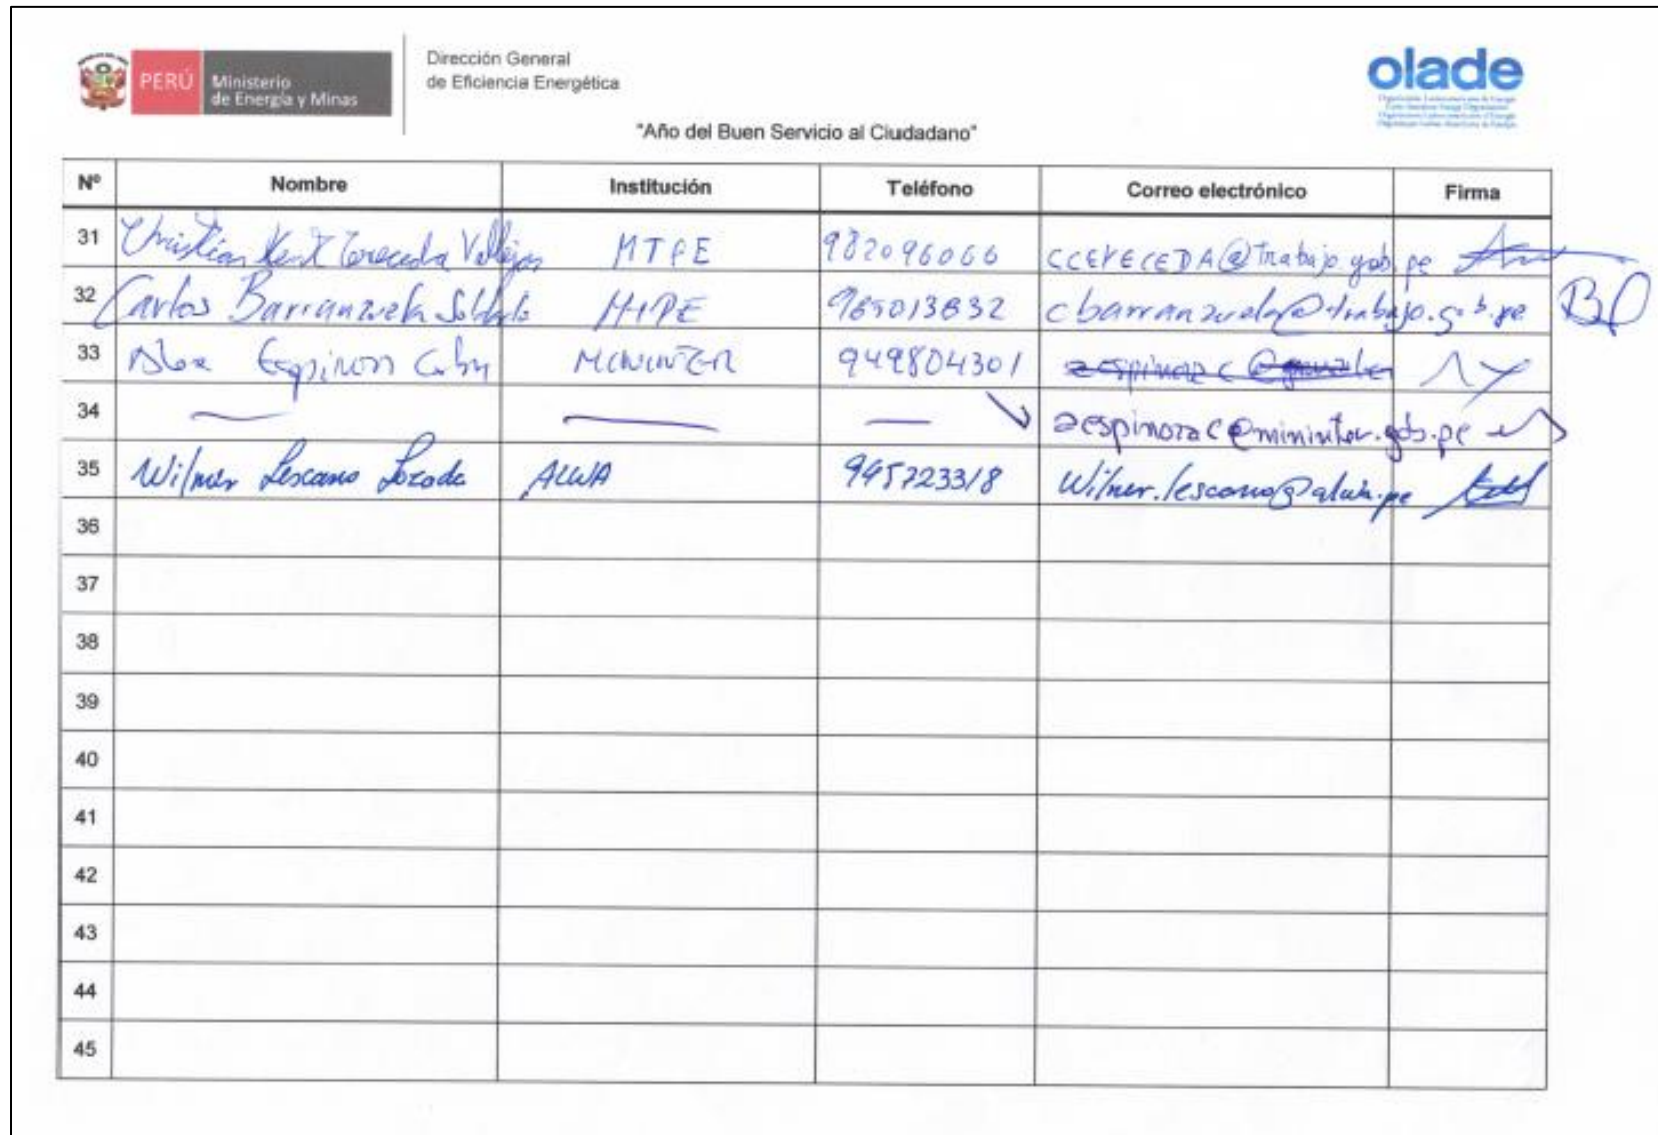 PERÚ Ministerio de Energía y Minas
Dirección General
de Eficiencia Energética
olade
"Año del Buen Servicio al Ciudadano"
Nº Nombre Institución Teléfono Correo electrónico Firma
31 Christian Kent Cereceda Vallejos MTPE 982096066 CCERECEDA@trabajo.gob.pe
32 Carlos Barranzuela MTPE 965013832 cbarranzuela@trabajo.gob.pe
33 Espinoza MININTER 949804301
34 aespinozac@mininter.gob.pe
35 Wilmer Lescano Lozada ALWA 945723318 Wilmer.lescano@alwa.pe
36
37
38
39
40
41
42
43
44
45